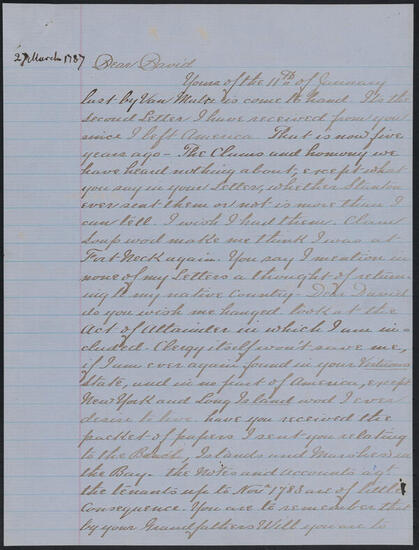 27 March 1787
Dear David
Yours of the 11th of January
last by Van Mulse is come to hand. It's the
second Letter I have received from you
since I left America. That is now five
years ago - The Clams and homony we
have heard nothing about, except what
you say in your Letter, whether Stinton
ever sent them or not is more than I
can tell. I wish I had them. Clam
Soup wod make me think I was at
Fort Neck again. You say I mention in
none of my Letters a thought of return-
ing to my native Country - Dear David
do you wish me hanged. Look at the
Act of Attainder in which I am in-
cluded - Clergy itself won't save me,
if I am ever again found in your Virtuous
State, and in no part of America, except
New York and Long Island wod I ever
desire to live. have you received the
packet of papers I sent you relating
to the Beach, Islands and Marshes in
the Bay. the Notes and Accounts agt
the tenants up to Novr 1783 are of little
Consequence. You are to remember that
by your Grandfathers Will you are to